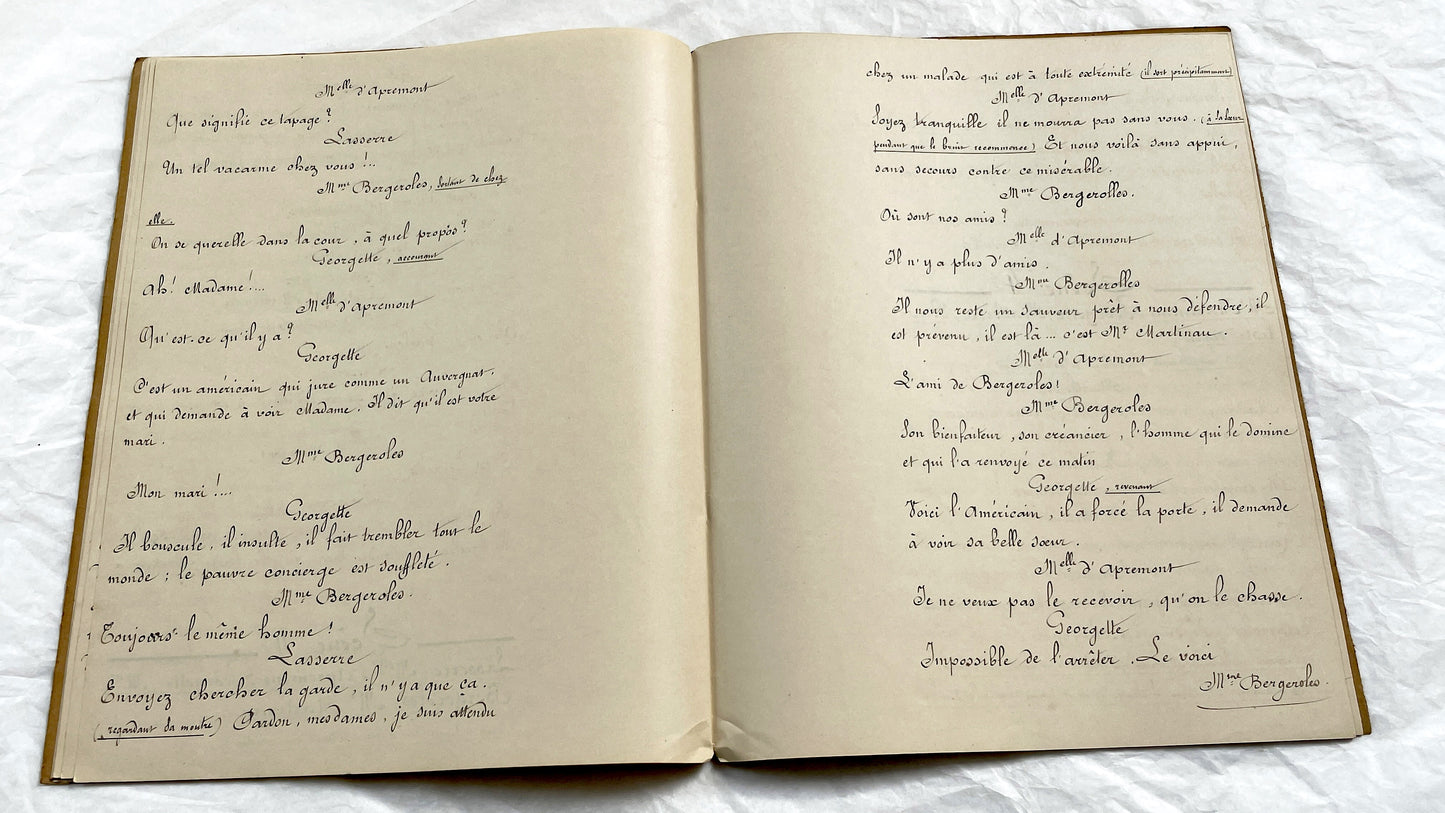 Melle d'Apremont
Que signifie ce tapage ?
Lasserre
Un tel vacarme chez vous !..
Mme Bergeroles, sortant de chez
elle.
On se querelle dans la cour, à quel propos ?
Georgette, accourant
Ah ! Madame !....
Melle d'Apremont
Qu'est-ce qu'il y a ?
Georgette
C'est un américain qui jure comme un Auvergnat,
et qui demande à voir Madame. Il dit qu'il est votre
mari.
Mme Bergeroles
Mon mari !...
Georgette
Il bouscule, il insulte, il fait trembler tout le
monde ; le pauvre concierge est souffleté.
Mme Bergeroles.
Toujours le même homme !
Lasserre
Envoyez chercher la garde, il n'y a que ça.
(regardant sa montre) Pardon, mesdames, je suis attendu
chez un malade qui est à toute extrémité (il sort précipitamment)
Melle d'Apremont
Soyez tranquille il ne mourra pas sans vous. (à sa sœur
pendant que le bruit recommence) Et nous voilà sans appui,
sans secours contre ce misérable.
Mme Bergerolles.
Où sont nos amis ?
Melle d'Apremont
Il n'y a plus d'amis.
Mme Bergerolles
Il nous reste un sauveur prêt à nous défendre, il
est prévenu, il est là ... c'est Mr Martinau.
Melle d'Apremont
L'ami de Bergeroles !
Mme Bergeroles
Son bienfaiteur, son créancier, l'homme qui le domine
et qui l'a renvoyé ce matin
Georgette, revenant
Voici l'Américain, il a forcé la porte, il demande
à voir sa belle sœur.
Melle d'Apremont
Je ne veux pas le recevoir, qu'on le chasse.
Georgette
Impossible de l'arrêter. Le voici
Mme Bergeroles.